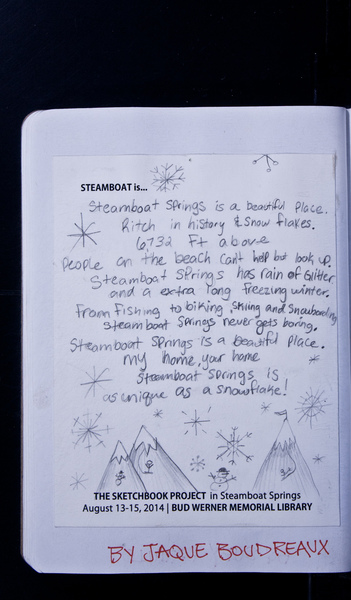 STEAMBOAT is...
Steamboat Springs is a beautiful place.
Ritch in history & snow flakes.
6732 Ft above
People on the beach can't help but look up.
Steamboat Springs has rain of Glitter
and a extra long freezing winter.
From Fishing to biking, skiing and Snowboarding
Steamboat Springs never gets boring.
Steamboat Springs is a beautiful place.
my home, your home
Steamboat Springs is
as unique as a snowflake!
THE SKETCHBOOK PROJECT in Steamboat Springs
August 13-15, 2014 | BUD WERNER MEMORIAL LIBRARY
BY JAQUE BOUDREAUX